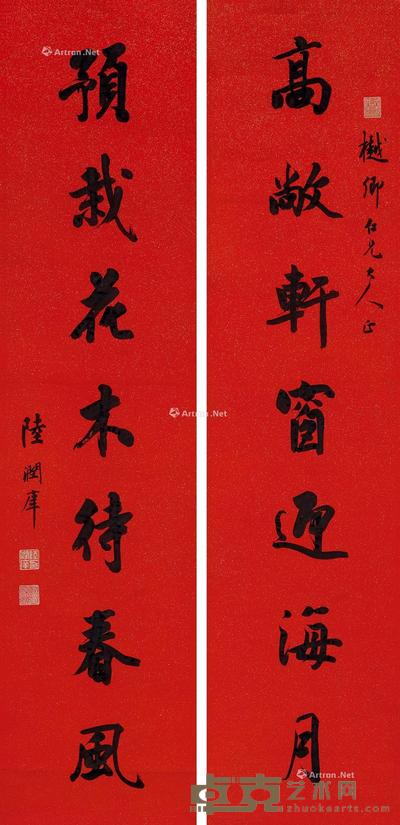 高敞軒窗迎海月
樾卿仁兄大人正
預栽花木待春風
陸潤庠
Artron.Net
Artron.Net
Artron.Net
Artron.Net
Artron.Net
卓克艺术网
zhuokearts.com